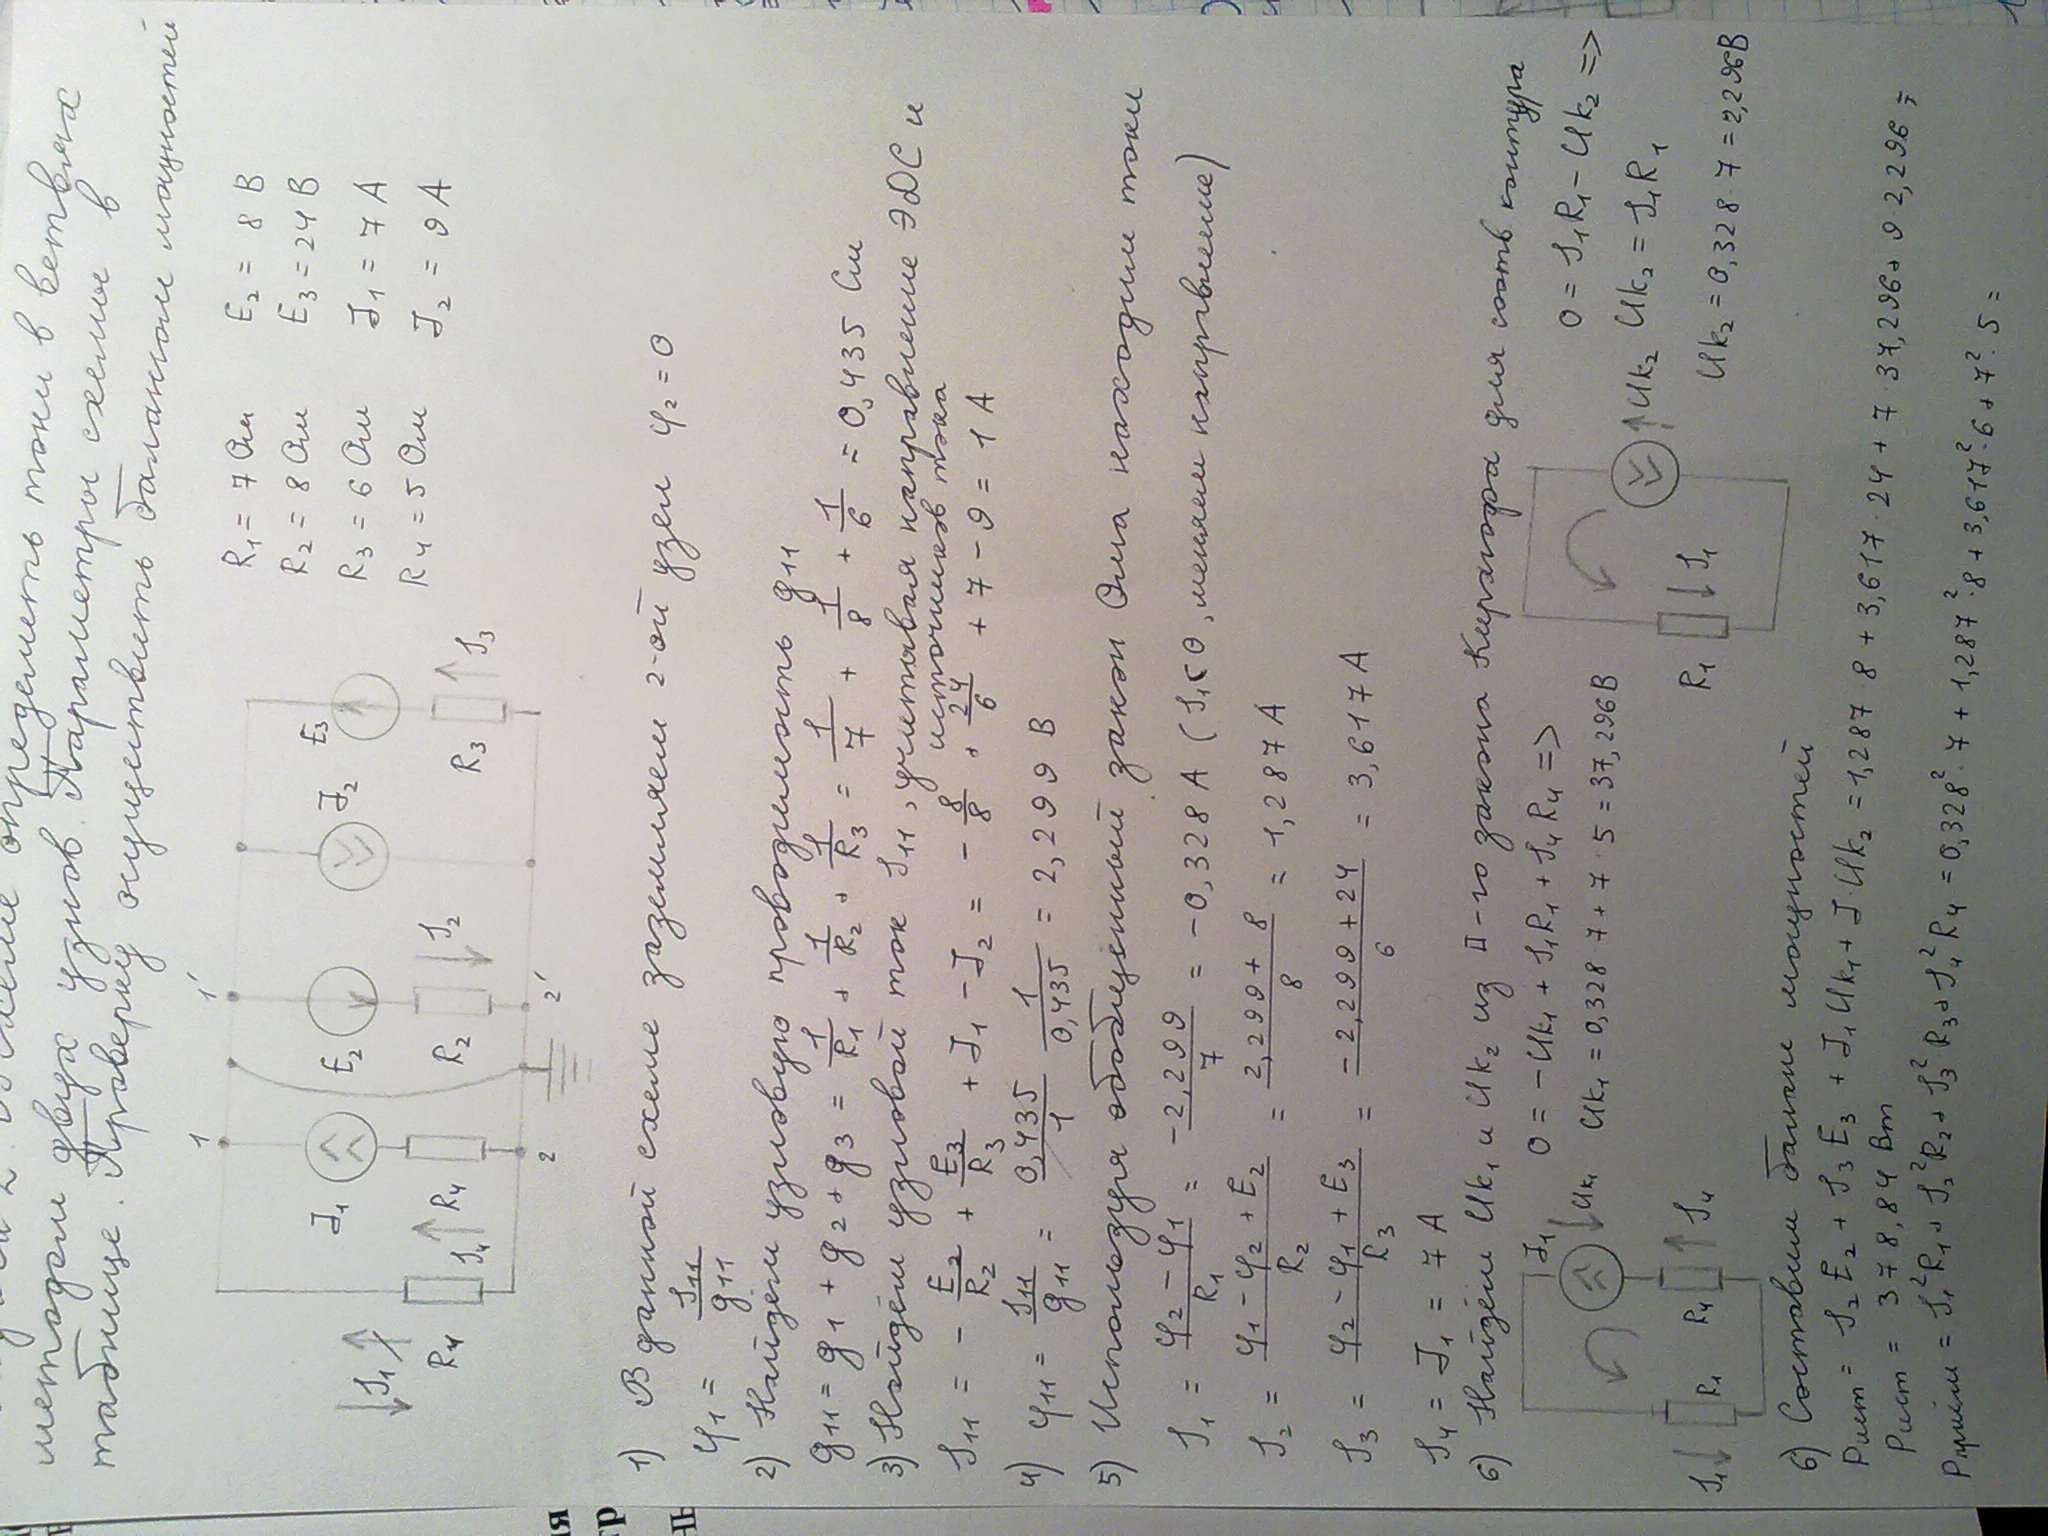 методом двух узлов. Параметры схемы в
таблице. Проверку осуществить балансом мощностей
R1 = 7 Ом E2 = 8 В
R2 = 8 Ом E3 = 24 В
R3 = 6 Ом J1 = 7 А
R4 = 5 Ом J2 = 9 А
1 1'
J1 E2 J2 E3
I1 R4 I4 R4 R2 I2 R3 I3
2 2'
1) В данной схеме заземляем 2-ой узел φ2 = 0
φ1 = I11/g11
2) Найдём узловую проводимость g11
g11 = g1 + g2 + g3 = 1/R1 + 1/R2 + 1/R3 = 1/7 + 1/8 + 1/6 = 0,435 См
3) Найдём узловой ток I11, учитывая направление ЭДС и
источников тока
I11 = - E2/R2 + E3/R3 + J1 - J2 = - 8/8 + 24/6 + 7 - 9 = 1 А
4) φ11 = I11/g11 = 0,435/1 1/0,435 = 2,299 В
5) Используя обобщённый закон Ома находим токи
I1 = φ2 - φ1/R1 = -2,299/7 = -0,328 А (I1<0, меняем направление)
I2 = φ1 - φ2 + E2/R2 = 2,299 + 8/8 = 1,287 А
I3 = φ2 - φ1 + E3/R3 = -2,299 + 24/6 = 3,617 А
I4 = J1 = 7 А
6) Найдём Uk1 и Uk2 из II-го закона Кирхгофа для контура
J1 Uk1 0 = -Uk1 + I1R1 + I4R4 =>
Uk1 = 0,328 7 + 7 · 5 = 37,296 В
I1 R1 R4 I4
0 = I1R1 - Uk2 =>
Uk2 Uk2 = I1R1
Uk2 = 0,328 · 7 = 2,296 В
R1 I1
6) Составим баланс мощностей
Pист = I2E2 + I3E3 + J1Uk1 + J·Uk2 = 1,287·8 + 3,617·24 + 7 37,296 + 9 2,296 =
Pист = 378,84 Вт
= I1²R1 + I2²R2 + I3²R3 + I4²R4 = 0,328²·7 + 1,287²·8 + 3,617²·6 + 7²·5 =